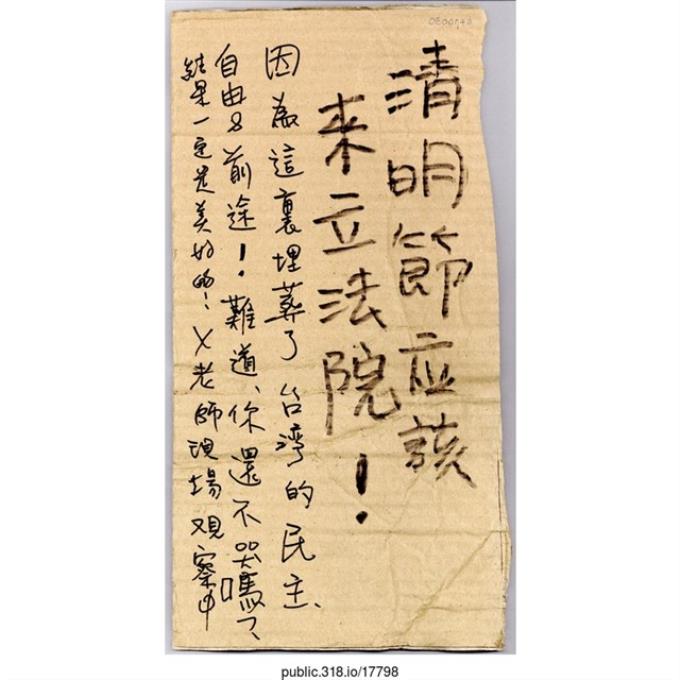 清明節应該
來立法院!
因為這裏埋葬了台湾的民主、
自由&前途!難道、你還不哭嗎?、
結果一定是美好的!ㄨ老師現場观察中
public.318.io/17798